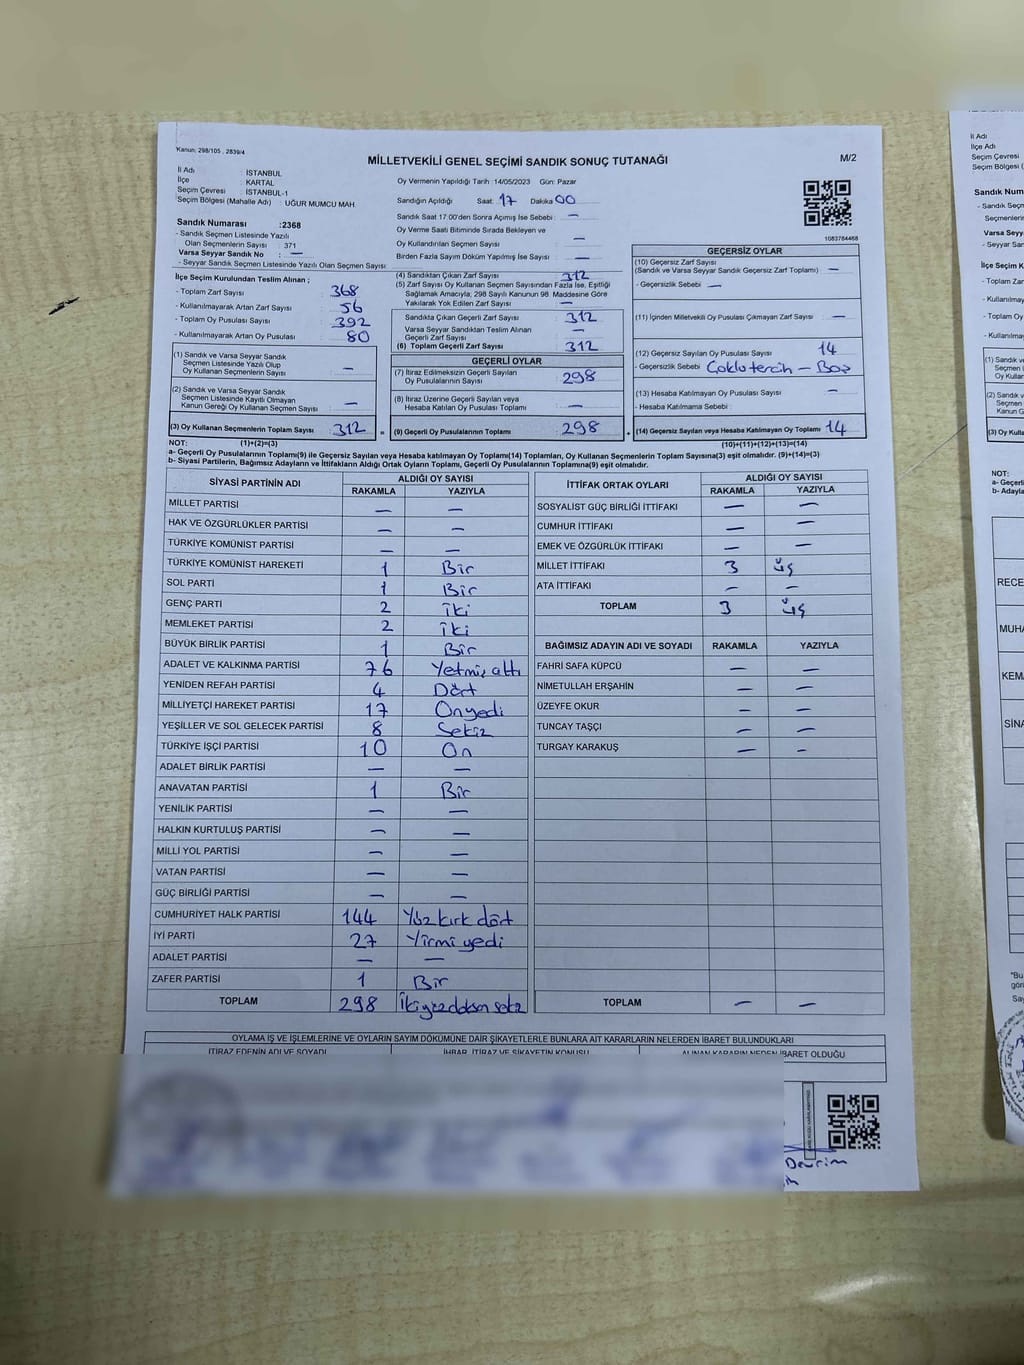 Kanun: 298/105 , 2839/4
MİLLETVEKİLİ GENEL SEÇİMİ SANDIK SONUÇ TUTANAĞI
M/2
İl Adı : İSTANBUL
İlçe : KARTAL
Seçim Çevresi : İSTANBUL-1
Seçim Bölgesi (Mahalle Adı) : UĞUR MUMCU MAH.
Sandık Numarası :2368
- Sandık Seçmen Listesinde Yazılı
Olan Seçmenlerin Sayısı : 371
Varsa Seyyar Sandık No : —
- Seyyar Sandık Seçmen Listesinde Yazılı Olan Seçmen Sayısı
Oy Vermenin Yapıldığı Tarih :14/05/2023 Gün: Pazar
Sandığın Açıldığı Saat: 17 Dakika 00
Sandık Saat 17:00'den Sonra Açımış İse Sebebi : —
Oy Verme Saati Bitiminde Sırada Bekleyen ve
Oy Kullandırılan Seçmen Sayısı : —
Birden Fazla Sayım Döküm Yapılmış İse Sayısı : —
1083784468
İlçe Seçim Kurulundan Teslim Alınan ;
- Toplam Zarf Sayısı : 368
- Kullanılmayarak Artan Zarf Sayısı : 56
- Toplam Oy Pusulası Sayısı : 392
- Kullanılmayarak Artan Oy Pusulası : 80
(1) Sandık ve Varsa Seyyar Sandık
Seçmen Listesinde Yazılı Olup
Oy Kullanan Seçmenlerin Sayısı : —
(2) Sandık ve Varsa Seyyar Sandık
Seçmen Listesinde Kayıtlı Olmayan
Kanun Gereği Oy Kullanan Seçmen Sayısı : —
(3) Oy Kullanan Seçmenlerin Toplam Sayısı : 312
(4) Sandıktan Çıkan Zarf Sayısı : 312
(5) Zarf Sayısı Oy Kullanan Seçmen Sayısından Fazla İse, Eşitliği
Sağlamak Amacıyla, 298 Sayılı Kanunun 98. Maddesine Göre
Yakılarak Yok Edilen Zarf Sayısı : —
Sandıkta Çıkan Geçerli Zarf Sayısı : 312
Varsa Seyyar Sandıktan Teslim Alınan
Geçerli Zarf Sayısı : —
(6) Toplam Geçerli Zarf Sayısı : 312
GEÇERLİ OYLAR
(7) İtiraz Edilmeksizin Geçerli Sayılan
Oy Pusulalarının Sayısı : 298
(8) İtiraz Üzerine Geçerli Sayılan veya
Hesaba Katılan Oy Pusulası Toplamı : —
(9) Geçerli Oy Pusulalarının Toplamı : 298
GEÇERSİZ OYLAR
(10) Geçersiz Zarf Sayısı
(Sandık ve Varsa Seyyar Sandık Geçersiz Zarf Toplamı) : —
- Geçersizlik Sebebi : —
(11) İçinden Milletvekili Oy Pusulası Çıkmayan Zarf Sayısı : —
(12) Geçersiz Sayılan Oy Pusulası Sayısı : 14
- Geçersizlik Sebebi : Çoklu tercih – Boş
(13) Hesaba Katılmayan Oy Pusulası Sayısı : —
- Hesaba Katılmama Sebebi :
(14) Geçersiz Sayılan veya Hesaba Katılmayan Oy Toplamı : 14
NOT: (1)+(2)=(3) (10)+(11)+(12)+(13)=(14)
a- Geçerli Oy Pusulalarının Toplamı(9) ile Geçersiz Sayılan veya Hesaba katılmayan Oy Toplamı(14) Toplamları, Oy Kullanan Seçmenlerin Toplam Sayısına(3) eşit olmalıdır. (9)+(14)=(3)
b- Siyasi Partilerin, Bağımsız Adayların ve İttifakların Aldığı Ortak Oyların Toplamı, Geçerli Oy Pusulalarının Toplamına(9) eşit olmalıdır.
SİYASİ PARTİNİN ADI ALDIĞI OY SAYISI
RAKAMLA YAZIYLA
MİLLET PARTİSİ — —
HAK VE ÖZGÜRLÜKLER PARTİSİ — —
TÜRKİYE KOMÜNİST PARTİSİ — —
TÜRKİYE KOMÜNİST HAREKETİ 1 Bir
SOL PARTİ 1 Bir
GENÇ PARTİ 2 İki
MEMLEKET PARTİSİ 2 İki
BÜYÜK BİRLİK PARTİSİ 1 Bir
ADALET VE KALKINMA PARTİSİ 76 Yetmiş altı
YENİDEN REFAH PARTİSİ 4 Dört
MİLLİYETÇİ HAREKET PARTİSİ 17 Onyedi
YEŞİLLER VE SOL GELECEK PARTİSİ 8 Sekiz
TÜRKİYE İŞÇİ PARTİSİ 10 On
ADALET BİRLİK PARTİSİ — —
ANAVATAN PARTİSİ 1 Bir
YENİLİK PARTİSİ — —
HALKIN KURTULUŞ PARTİSİ — —
MİLLİ YOL PARTİSİ — —
VATAN PARTİSİ — —
GÜÇ BİRLİĞİ PARTİSİ — —
CUMHURİYET HALK PARTİSİ 144 Yüz kırk dört
İYİ PARTİ 27 Yirmi yedi
ADALET PARTİSİ — —
ZAFER PARTİSİ 1 Bir
TOPLAM 298 İkiyüzdoksan sekiz
İTTİFAK ORTAK OYLARI ALDIĞI OY SAYISI
RAKAMLA YAZIYLA
SOSYALİST GÜÇ BİRLİĞİ İTTİFAKI — —
CUMHUR İTTİFAKI — —
EMEK VE ÖZGÜRLÜK İTTİFAKI — —
MİLLET İTTİFAKI 3 üç
ATA İTTİFAKI — —
TOPLAM 3 üç
BAĞIMSIZ ADAYIN ADI VE SOYADI RAKAMLA YAZIYLA
FAHRİ SAFA KÜPCÜ — —
NİMETULLAH ERŞAHİN — —
ÜZEYFE OKUR — —
TUNCAY TAŞÇI — —
TURGAY KARAKUŞ — —
TOPLAM — —
OYLAMA İŞ VE İŞLEMLERİNE VE OYLARIN SAYIM DÖKÜMÜNE DAİR ŞİKAYETLERLE BUNLARA AİT KARARLARIN NELERDEN İBARET BULUNDUKLARI
İTİRAZ EDENİN ADI VE SOYADI İHBAR, İTİRAZ VE ŞİKAYETİN KONUSU ALINAN KARARIN NEDEN İBARET OLDUĞU
Devrim
İl Adı
İlçe Adı
Seçim Çevresi
Seçim Bölgesi (
Sandık Num
- Sandık Seçm
Seçmenleri
Varsa Seyy
- Seyyar San
İlçe Seçim K
- Toplam Zarf
- Kullanılmaya
- Toplam Oy
- Kullanılmaya
(1) Sandık ve
Seçmen
Oy Kullan
(2) Sandık v
Seçmen
Kanun G
(3) Oy Kulla
NOT:
a- Geçerli
b- Adayla
RECE
MUHA
KEMA
SİNA
"Bu
gör
Say